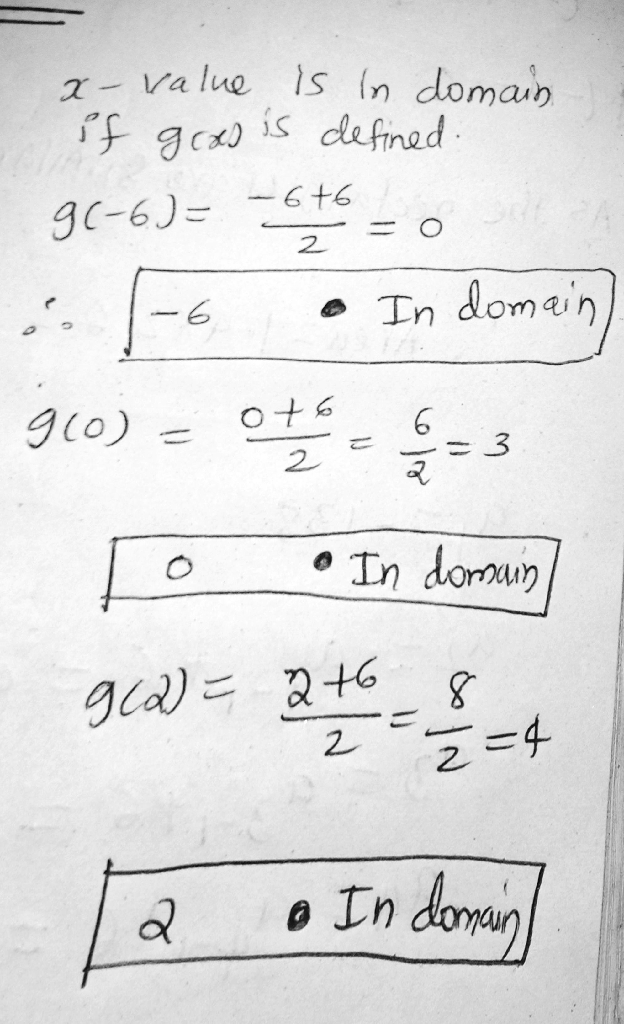 x - value is in domain
if g(x) is defined.
g(-6) = -6+6/2 = 0
∴ -6 • In domain
g(0) = 0+6/2 = 6/2 = 3
0 • In domain
g(2) = 2+6/2 = 8/2 = 4
2 • In domain